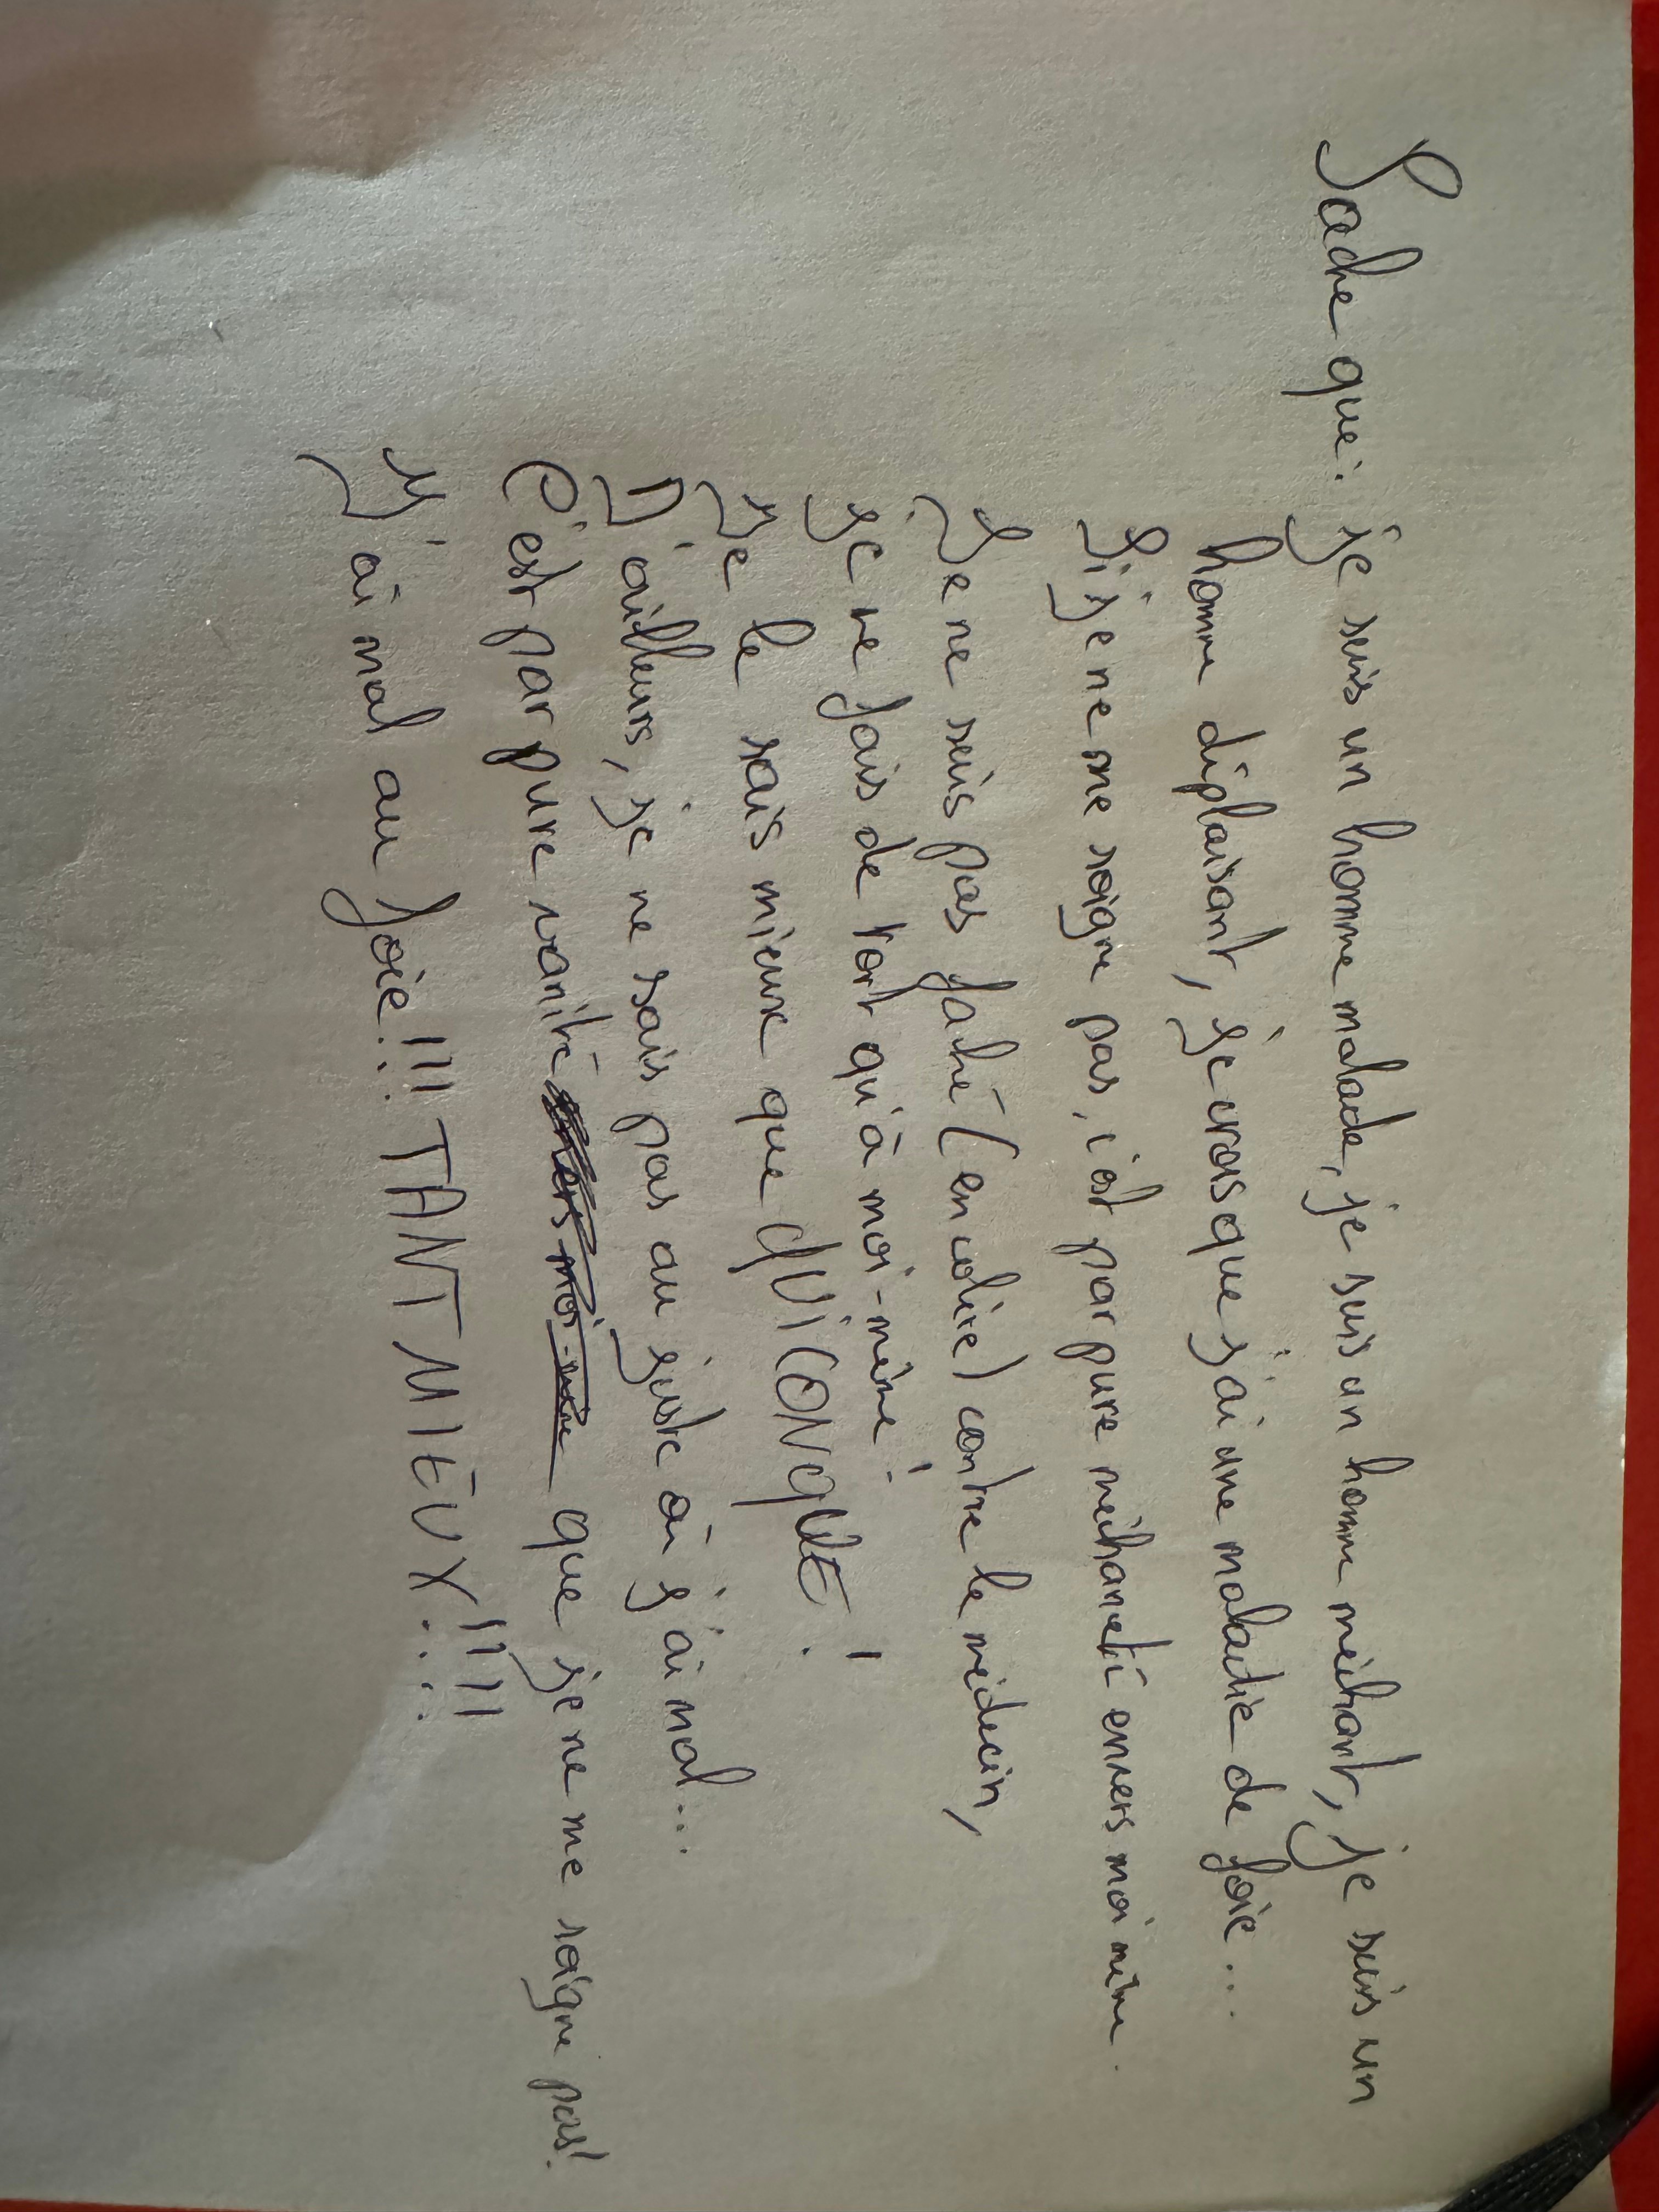 Sache que : je suis un homme malade, je suis un homme méchant, je suis un
homme déplaisant, je crois que j'ai une maladie de foie...
Si je ne me soigne pas, c'est par pure méchanceté envers moi même.
Je ne suis pas fahé (en colère) contre le médecin,
Je ne fais de tort qu'à moi-même
Je le sais mieux que QUICONQUE !
D'ailleurs, je ne sais pas au juste où j'ai mal...
C'est par pure vanité envers moi-même que je ne me soigne pas!
J'ai mal au foie!!! TANT MIEUX!!!!